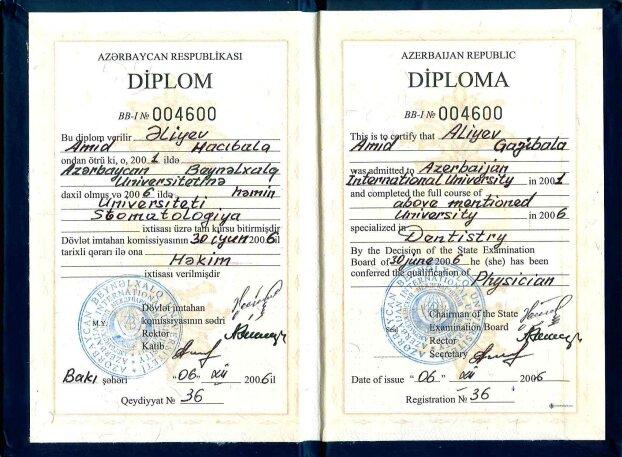 AZƏRBAYCAN RESPUBLİKASI
DİPLOM
BB-I № 004600
Bu diplom verilir Əliyev
Amid Hacıbala
ondan ötrü ki, o, 2001 ildə
Azərbaycan Beynəlxalq
Universitetinə
daxil olmuş və 2006 ildə həmin
Universiteti
Stomatologiya
ixtisası üzrə tam kursu bitirmişdir
Dövlət imtahan komissiyasının 30 iyun 2006 il
tarixli qərarı ilə ona
Həkim
ixtisası verilmişdir
M.Y.
Dövlət imtahan
komissiyasının sədri
Rektor
Katib
Bakı şəhəri "06" XII 2006 il
Qeydiyyat № 36
AZERBAIJAN REPUBLIC
DİPLOMA
BB-I № 004600
This is to certify that Aliyev
Amid Gazibala
was admitted to Azerbaijan
International University in 2001
and completed the full course of
above mentioned
University in 2006
specialized in
Dentistry
By the Decision of the State Examination
Board of 30 june 2006 he (she) has been
conferred the qualification of
Physician
Seal
Chairman of the State
Examination Board
Rector
Secretary
Date of issue "06" XII 2006
Registration № 36